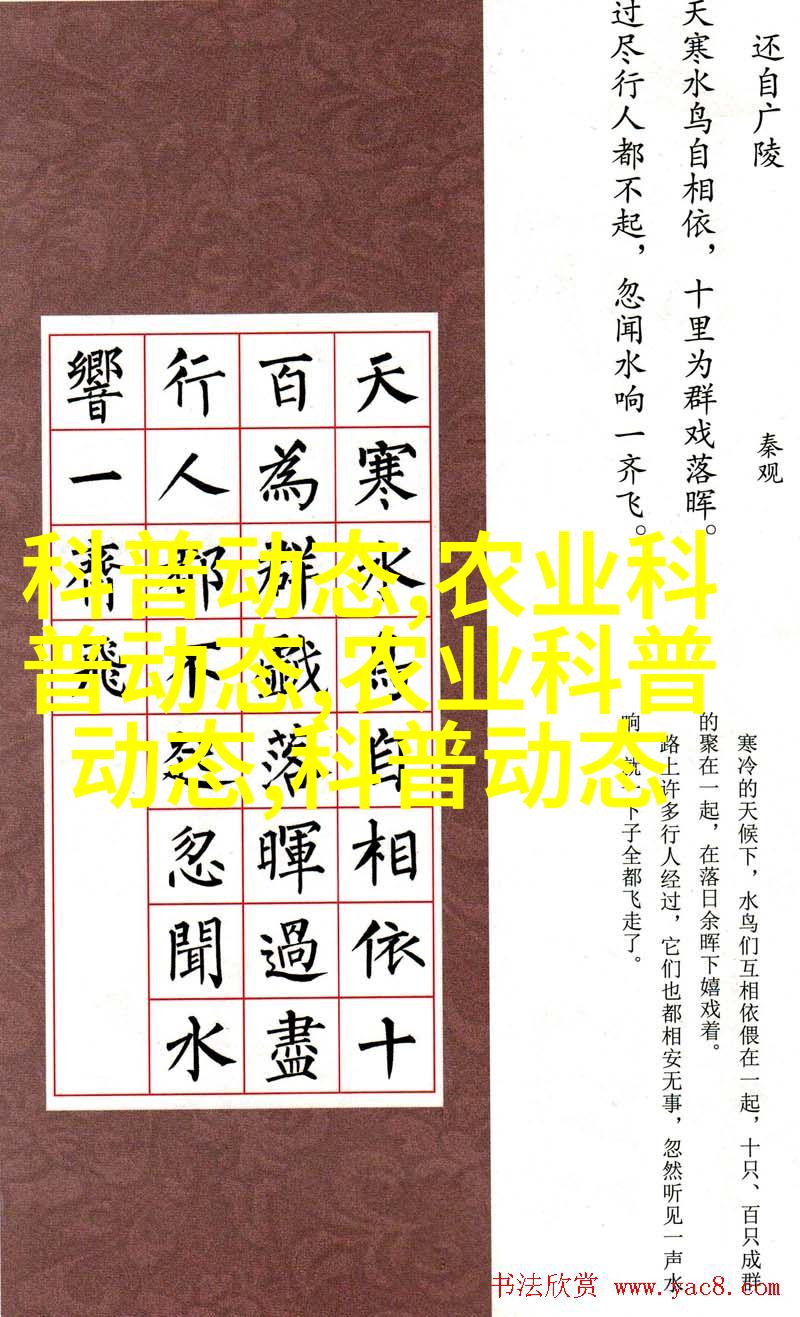 还自广陵
秦观
天寒水鸟自相依，十里为群戏落晖。
过尽行人都不起，忽闻水响一齐飞。
天寒水鸟自相依十
百為群戲落暉過盡
行人都不起忽聞水
響一齊飛
科普动态,农业科
普动态,农业科普
动态,科普动态
寒冷的天候下，水鸟们互相依偎在一起，十只、百只成群
的聚在一起，在落日余晖下嬉戏着。
路上许多行人经过，它们也都相安无事，忽然听见一声水
响，就一下子全都飞走了。
书法欣赏 www.yac8.com